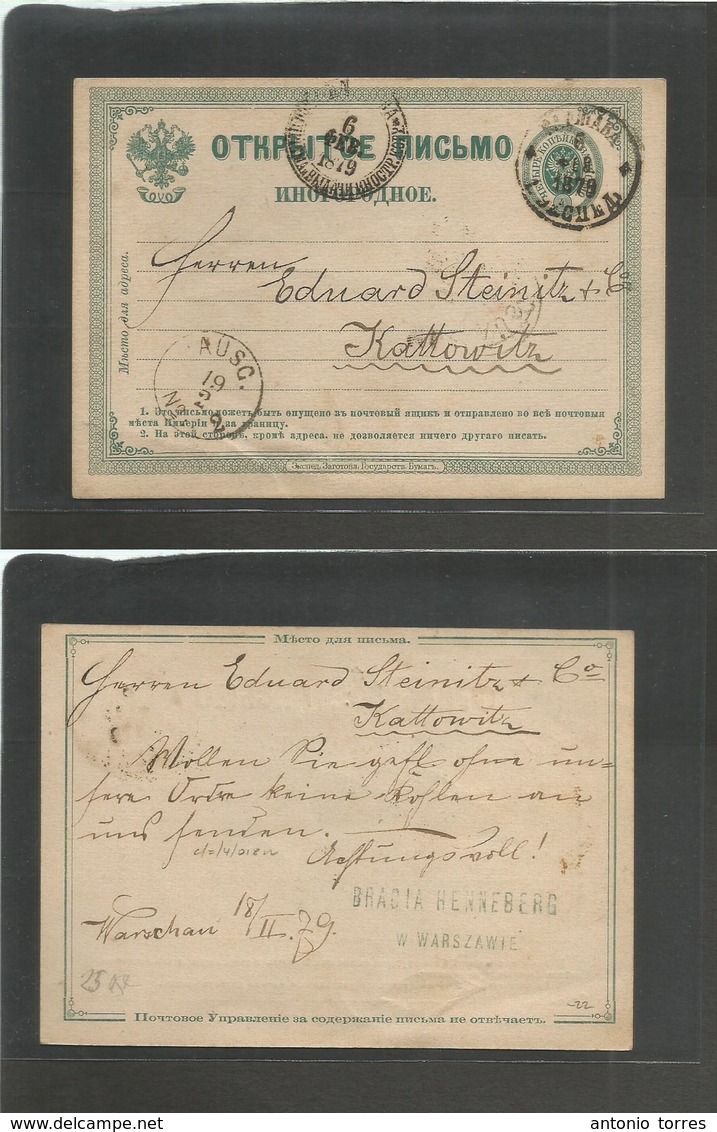 ОТКРЫТОЕ ПИСЬМО
ИНОГОРОДНОЕ.
6
ФЕВ.
1879
ВАРШАВА
1879
Мѣсто для адреса.
Herren
Eduard Steinitz & Co
Kattowitz
AUSG.
19
2
No 2
1. Это письмо можетъ быть опущено въ почтовый ящикъ и отправлено во всѣ почтовыя
мѣста Имперіи и за границу.
2. На этой сторонѣ, кромѣ адреса, не дозволяется ничего другаго писать.
Экспед. Заготовл. Государств. Бумагъ.
Мѣсто для письма.
Herren Eduard Steinitz & Co
Kattowitz
Wollen Sie gefl. ohne un=
sere Ordre keine Kohlen an
uns senden.
Achtungsvoll!
BRACIA HENNEBERG
W WARSZAWIE
Warschau 18/II. 79.
25
-22
Почтовое Управленіе за содержаніе письма не отвѣчаетъ.
www.delcampe.net
antonio torres